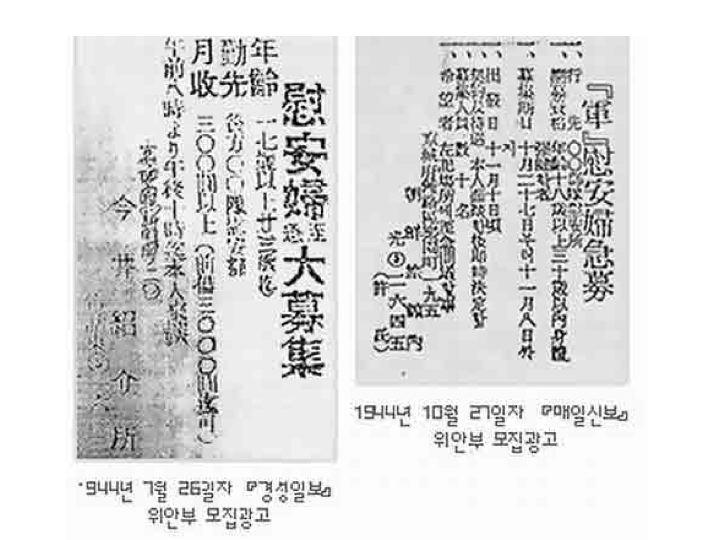 慰安婦至急大募集
年齢 一七歳以上廿三歳迄
勤先 後方〇〇隊慰安部
月收 三〇〇圓以上(前借三〇〇〇圓迄可)
午前八時より午後十時迄本人來談
今井紹介所
1944년 7월 26일자 『경성일보』
위안부 모집광고
『軍』慰安婦急募
一、行先 〇〇部隊慰安所
一、應募資格 年齢十八歳以上三十歳以內身體强健者
一、募集期日 十月二十七日부터十一月八日까지
一、出發日 十一月十日頃
一、契約及待遇 本人面談後即時決定함
一、募集人員數 十名
一、希望者 左記場所에至急問議의事
京城府鍾路區樂園町一九五
朝鮮旅館內
光③二六四五
(許氏)
1944년 10월 27일자 『매일신보』
위안부 모집광고